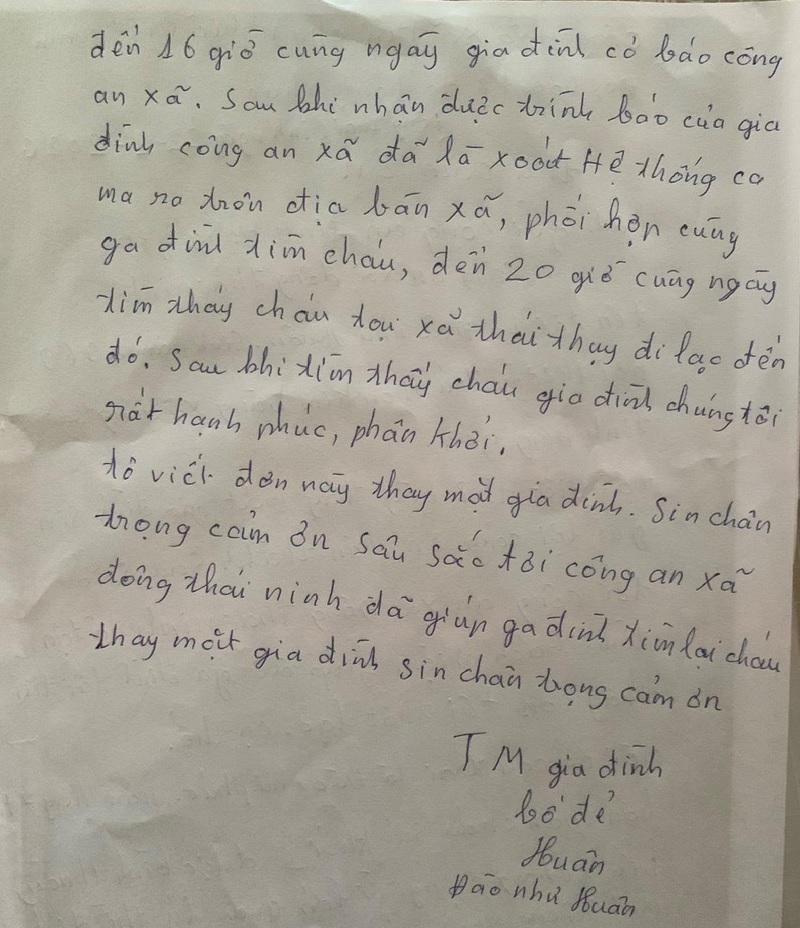 đến 16 giờ cùng ngày gia đình có báo công
an xã. Sau khi nhận được trình báo của gia
đình công an xã đã là xoát Hệ thống ca
ma ra trên địa bàn xã, phối hợp cùng
ga đình tìm cháu, đến 20 giờ cùng ngày
tìm thấy cháu tại xã thái thụy đi lạc đến
đó. Sau khi tìm thấy cháu gia đình chúng tôi
rất hạnh phúc, phấn khởi.
tô viết đơn này thay mặt gia đình. Sin chân
trọng cảm ơn sâu sắc tới công an xã
đông thái ninh đã giúp ga đình tìm lại cháu
thay mặt gia đình sin chân trọng cảm ơn
TM gia đình
bố đẻ
Huân
Đào như Huân